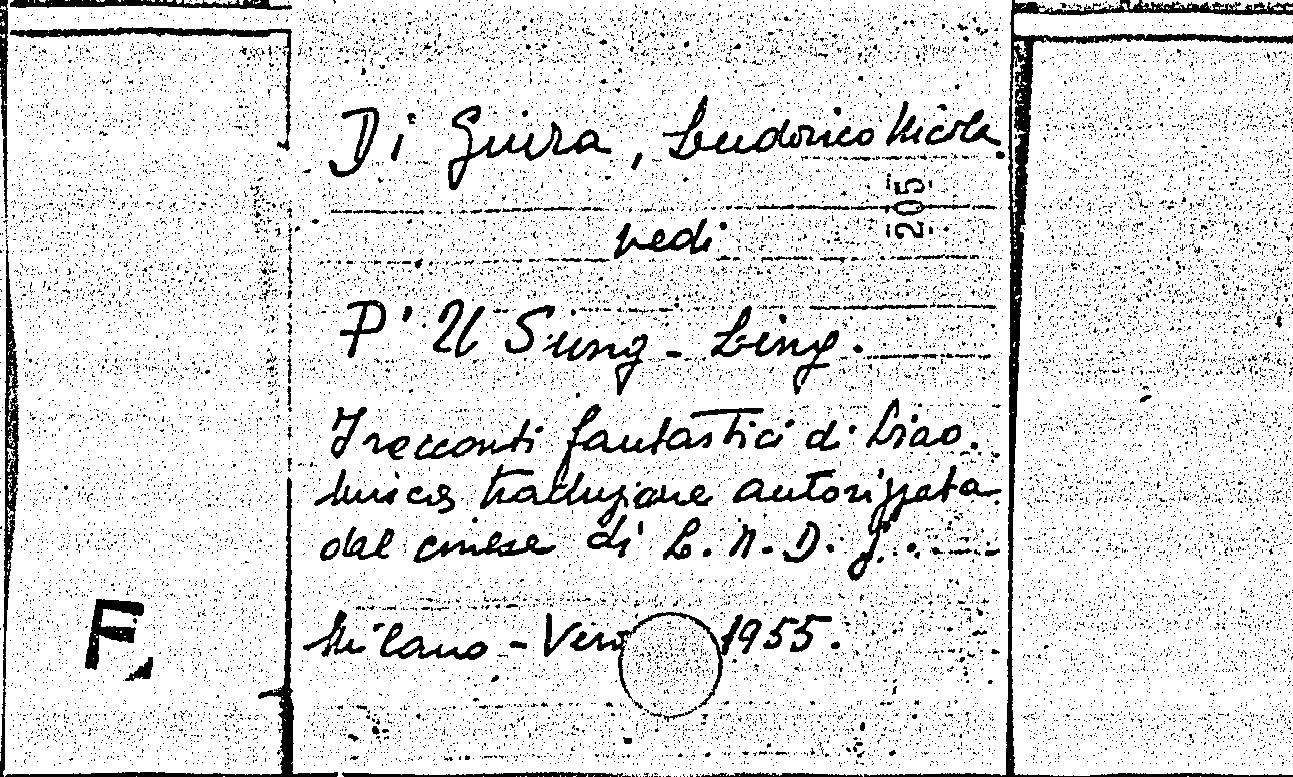 Di Giura, Ludovico Nicola.
205
vedi
P' U Sung-Ling.
I racconti fantastici di Liao.
traduzione autorizzata
dal cinese di L. N. D. G..
Milano - Ver 1955.
F